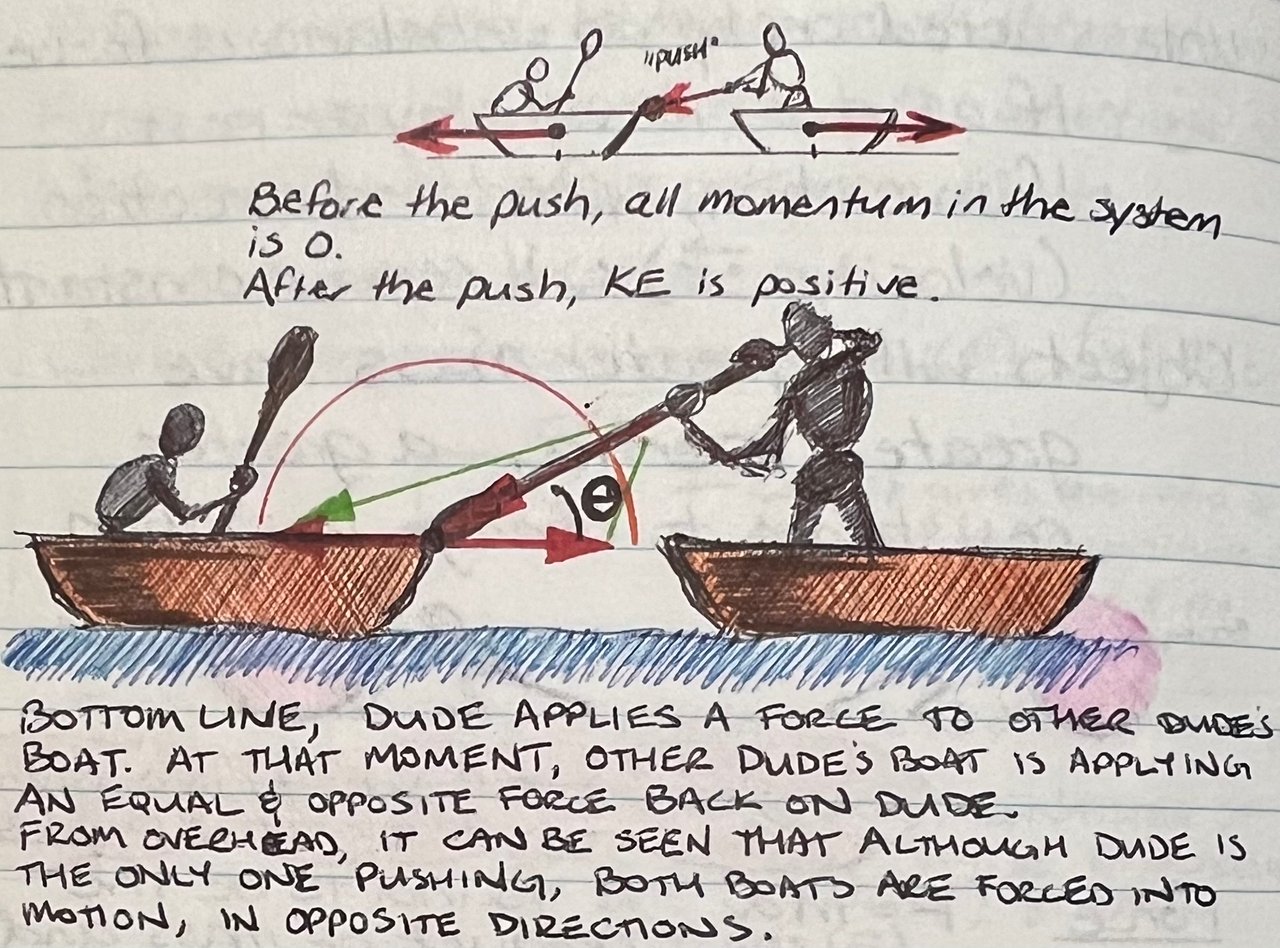 "PUSH"
Before the push, all momentum in the system
is 0.
After the push, KE is positive.
θ
BOTTOM LINE, DUDE APPLIES A FORCE TO OTHER DUDE'S
BOAT. AT THAT MOMENT, OTHER DUDE'S BOAT IS APPLYING
AN EQUAL & OPPOSITE FORCE BACK ON DUDE.
FROM OVERHEAD, IT CAN BE SEEN THAT ALTHOUGH DUDE IS
THE ONLY ONE PUSHING, BOTH BOATS ARE FORCED INTO
MOTION, IN OPPOSITE DIRECTIONS.